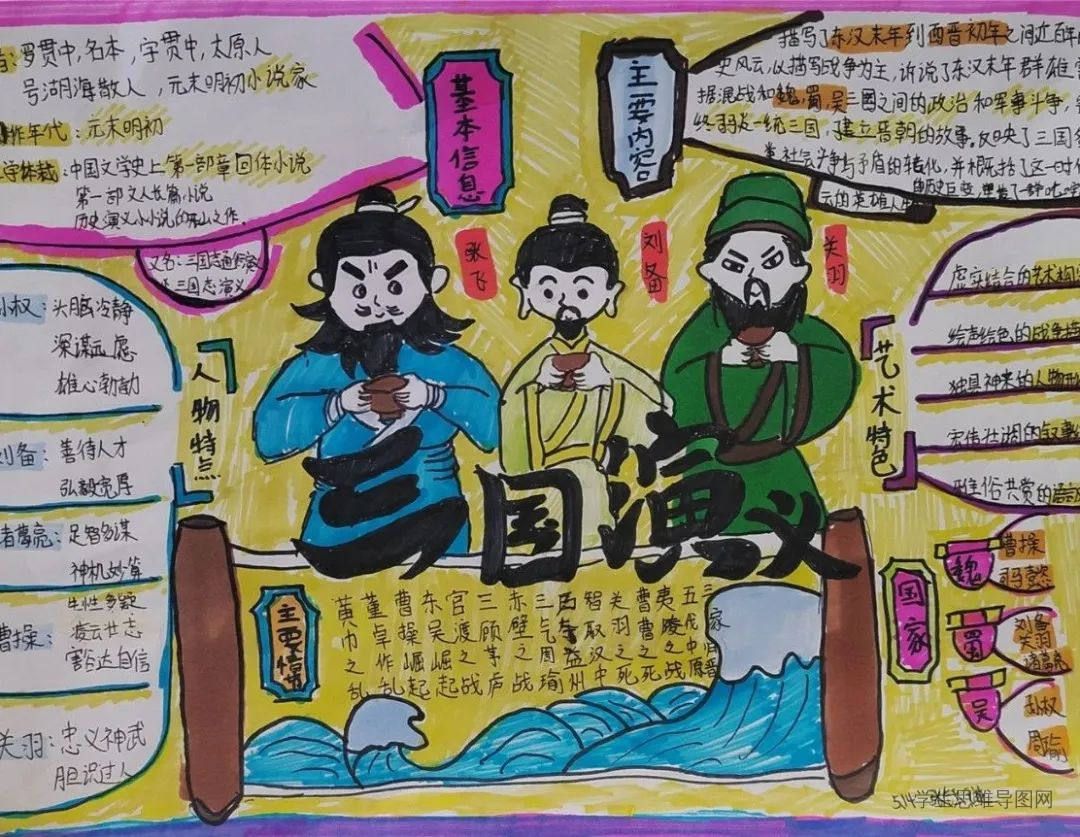 罗贯中,名本,字贯中,太原人
号湖海散人,元末明初小说家
作年代:元末明初
体裁:中国文学史上第一部章回体小说
第一部文人长篇小说
历史演义小说的开山之作.
又名:三国志通俗演义
三国志演义
基本信息
主要内容
描写了东汉末年到西晋初年之间近百年
史风云,以描写战争为主,诉说了东汉末年群雄
据混战和魏,蜀,吴三国之间的政治和军事斗争,
终司马炎一统三国,建立晋朝的故事.反映了三国
社会斗争与矛盾的转化,并概括了这一时
历史巨变,塑造了一群叱咤
云的英雄人
张飞
刘备
关羽
人物特点
孙权:头脑冷静
深谋远虑
雄心勃勃
刘备:善待人才
弘毅宽厚
诸葛亮:足智多谋
神机妙算
曹操:生性多疑
凌云壮志
豁达自信
关羽:忠义神武
胆识过人
艺术特色
虚实结合的艺术
绘声绘色的战争
独具神采的人物形
宏伟壮阔的叙事
雅俗共赏的语言
三国演义
主要情
黄巾之乱
董卓作乱
曹操崛起
东吴崛起
官渡之战
三顾茅庐
赤壁之战
三气周瑜
智取汉中
关羽之死
曹曹之死
夷陵之战
五虎中原
三家归晋
国家
魏
曹操
司马懿
蜀
刘备
关羽
诸葛亮
吴
孙权
周瑜
514学
思维导图网